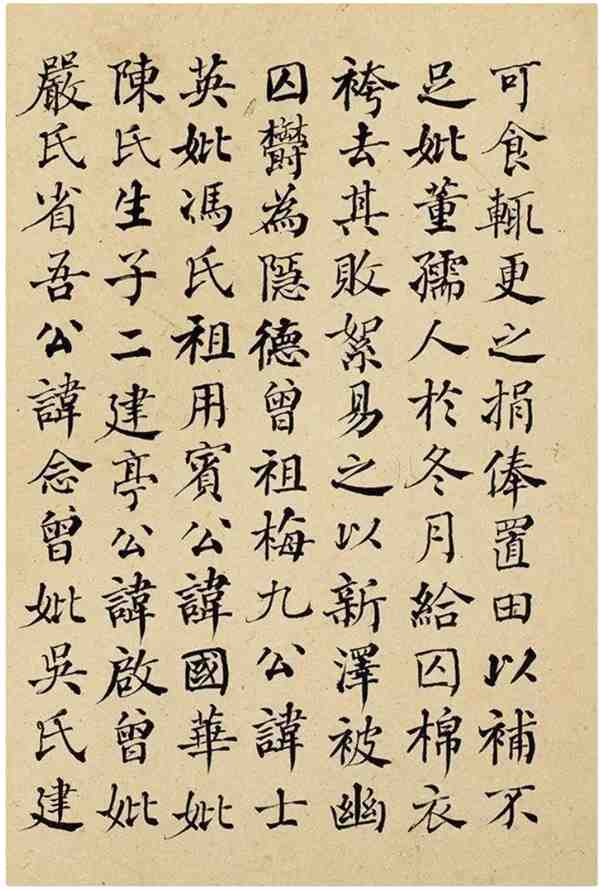 可食輒更之捐俸置田以補不
足妣董孺人於冬月給囚棉衣
袴去其敗絮易之以新澤被幽
囚欝為隱德曾祖梅九公諱士
英妣馮氏祖用賓公諱國華妣
陳氏生子二建亭公諱啟曾妣
嚴氏省吾公諱念曾妣吳氏建